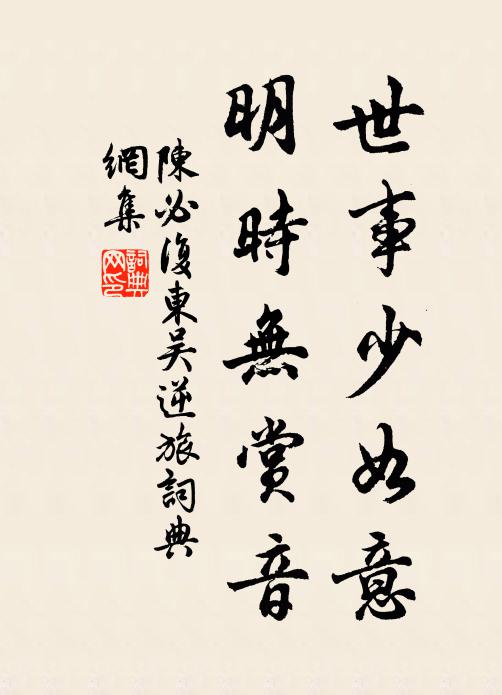 世事少如意
明時無賞音
陳必復東吴逆旅詞典
網集
詞典
网印